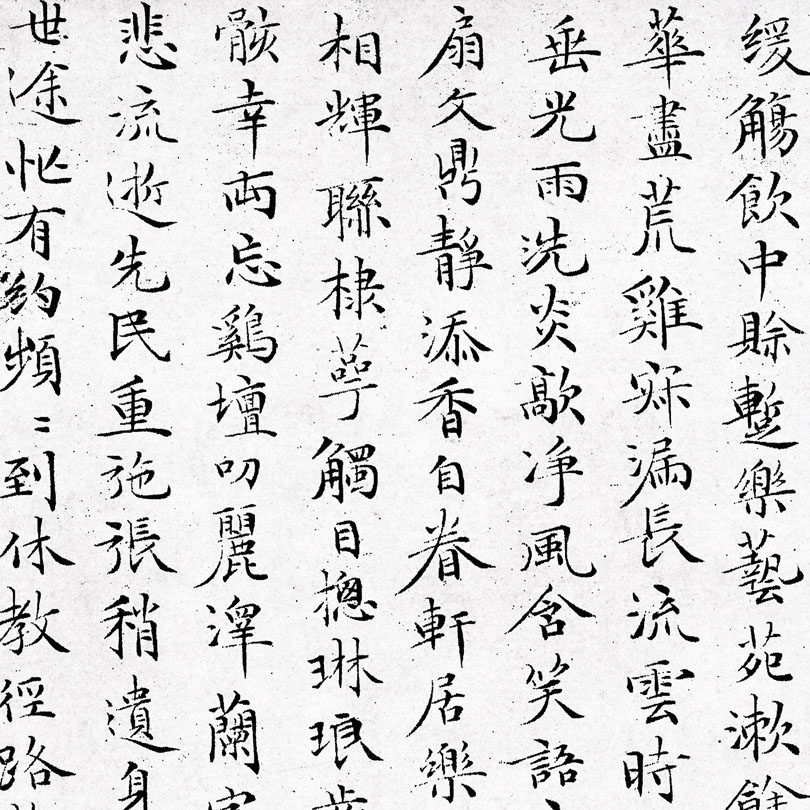 緩觴飲中賒蹔樂藝苑漱餘
華盡荒雞寐漏長流雲時
垂光雨洗炎歊净風含笑語
扇文鼎靜添香自眷軒居樂
相輝聯棣萼觸目摠琳琅
骸幸両忘鷄壇叨麗澤蘭
悲流逝先民重施張稍遺身
世途忙有約頻〻到休教徑路